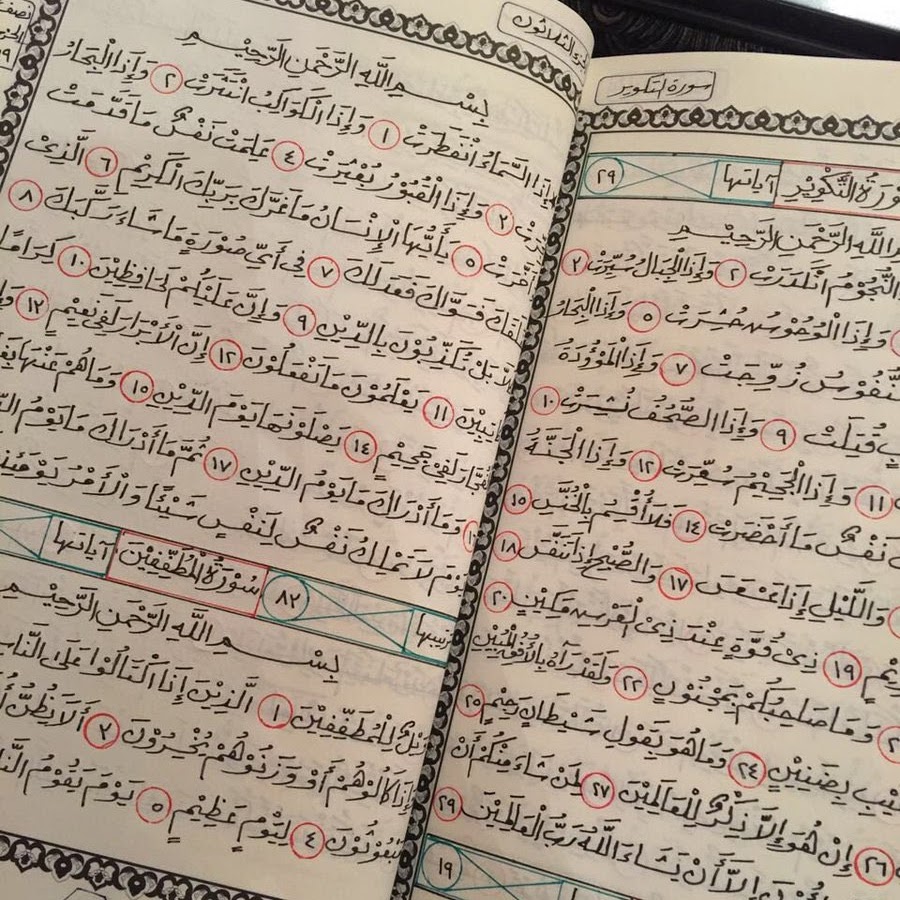 سورة التكوير
سورة التكوير آياتها ٢٩
الله الرحمن الرحيم
النجوم انكدرت ٢ وإذا الجبال سيرت ٣
وإذا الوحوش حشرت ٥ وإذا البحار
النفوس زوجت ٧ وإذا الموءودة
قتلت ٩ وإذا الصحف نشرت ١٠
١١ وإذا الجحيم سعرت ١٢ وإذا الجنة
نفس ما أحضرت ١٤ فلا أقسم بالخنس ١٥
والليل إذا عسعس ١٧ والصبح إذا تنفس ١٨
١٩ ذي قوة عند ذي العرش مكين ٢٠
وما صاحبكم بمجنون ٢٢ ولقد رآه بالأفق المبين
بضنين ٢٤ وما هو بقول شيطان رجيم ٢٥
٢٦ إن هو إلا ذكر للعالمين ٢٧ لمن شاء منكم أن
إلا أن يشاء الله رب العالمين ٢٩
١٩
الثلاثون
نصف
بسم الله الرحمن الرحيم
إذا السماء انفطرت ١ وإذا الكواكب انتثرت ٢ وإذا البحار
٣ وإذا القبور بعثرت ٤ علمت نفس ما قدمت
وأخرت ٥ يا أيها الإنسان ما غرك بربك الكريم ٦ الذي
خلقك فسواك فعدلك ٧ في أي صورة ما شاء ركبك ٨
كلا بل تكذبون بالدين ٩ وإن عليكم لحافظين ١٠ كراما
كاتبين ١١ يعلمون ما تفعلون ١٢ إن الأبرار لفي نعيم ١٣
الفجار لفي جحيم ١٤ يصلونها يوم الدين ١٥ وما هم عنها
وما أدراك ما يوم الدين ١٧ ثم ما أدراك ما يوم
يوم لا تملك نفس لنفس شيئا والأمر يومئذ
ترتيبها ٨٢ سورة المطففين آياتها
بسم الله الرحمن الرحيم
ويل للمطففين ١ الذين إذا اكتالوا على الناس
وإذا كالوهم أو وزنوهم يخسرون ٣ ألا يظن
مبعوثون ٤ ليوم عظيم ٥ يوم يقوم